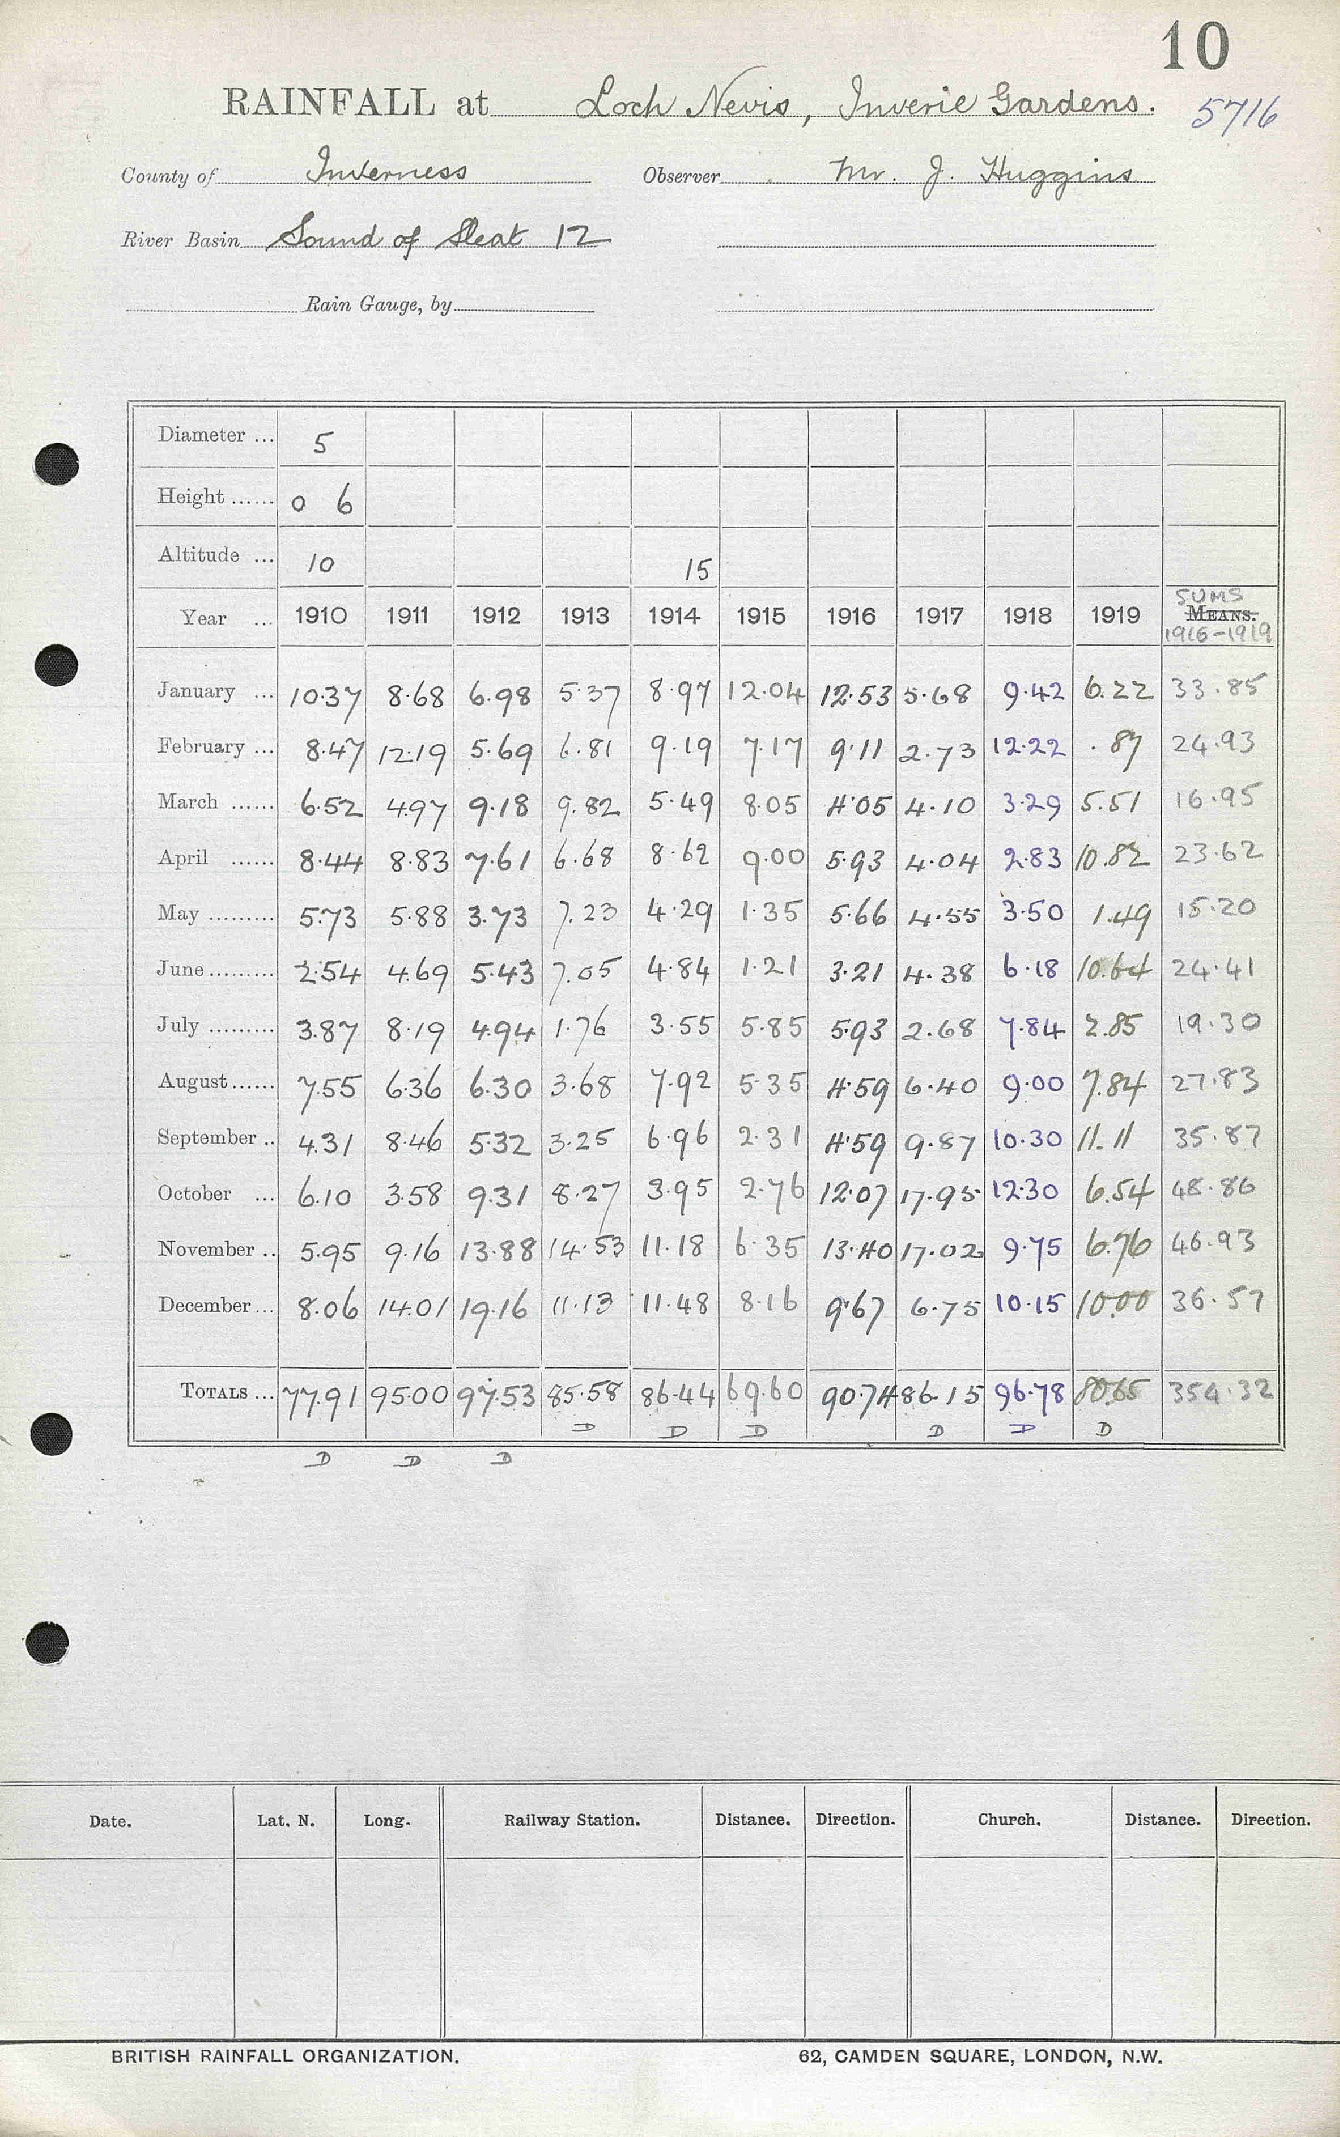 10
RAINFALL at Loch Nevis, Inverie Gardens. 5716
County of Inverness Observer Mr. J. Huggins
River Basin Sound of Sleat 12
Rain Gauge, by
Diameter ... 5
Height ...... 0 6
Altitude ... 10 15
Year ... 1910 1911 1912 1913 1914 1915 1916 1917 1918 1919 SUMS MEANS. 1916-1919
January ... 10.37 8.68 6.98 5.37 8.97 12.04 12.53 5.68 9.42 6.22 33.85
February ... 8.47 12.19 5.69 6.81 9.19 7.17 9.11 2.73 12.22 .87 24.93
March ...... 6.52 4.97 9.18 9.82 5.49 8.05 4.05 4.10 3.29 5.51 16.95
April ...... 8.44 8.83 7.61 6.68 8.62 9.00 5.93 4.04 2.83 10.82 23.62
May ......... 5.73 5.88 3.73 7.23 4.29 1.35 5.66 4.55 3.50 1.49 15.20
June ......... 2.54 4.69 5.43 7.05 4.84 1.21 3.21 4.38 6.18 10.64 24.41
July ......... 3.87 8.19 4.94 1.76 3.55 5.85 5.93 2.68 7.84 2.85 19.30
August ...... 7.55 6.36 6.30 3.68 7.92 5.35 4.59 6.40 9.00 7.84 27.83
September .. 4.31 8.46 5.32 3.25 6.96 2.31 4.59 9.87 10.30 11.11 35.87
October ... 6.10 3.58 9.31 8.27 3.95 2.76 12.07 17.95 12.30 6.54 48.86
November .. 5.95 9.16 13.88 14.53 11.18 6.35 13.40 17.02 9.75 6.76 46.93
December ... 8.06 14.01 19.16 11.13 11.48 8.16 9.67 6.75 10.15 10.00 36.57
TOTALS ... 77.91 95.00 97.53 85.58 86.44 69.60 90.74 86.15 96.78 80.65 354.32
D D D D D D
D D D
Date. Lat. N. Long. Railway Station. Distance. Direction. Church. Distance. Direction.
BRITISH RAINFALL ORGANIZATION. 62, CAMDEN SQUARE, LONDON, N.W.